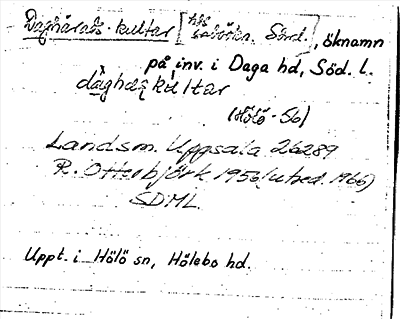 Daghärads-kultar [hos Sörd.], öknamn
på inv. i Daga hd, Söd. l.
(Hölö -56)
Landsm. Uppsala 26289
R. Otterbjörk 1956 (utred. 1966)
SDML
Uppt. i Hölö sn, Hölebo hd.